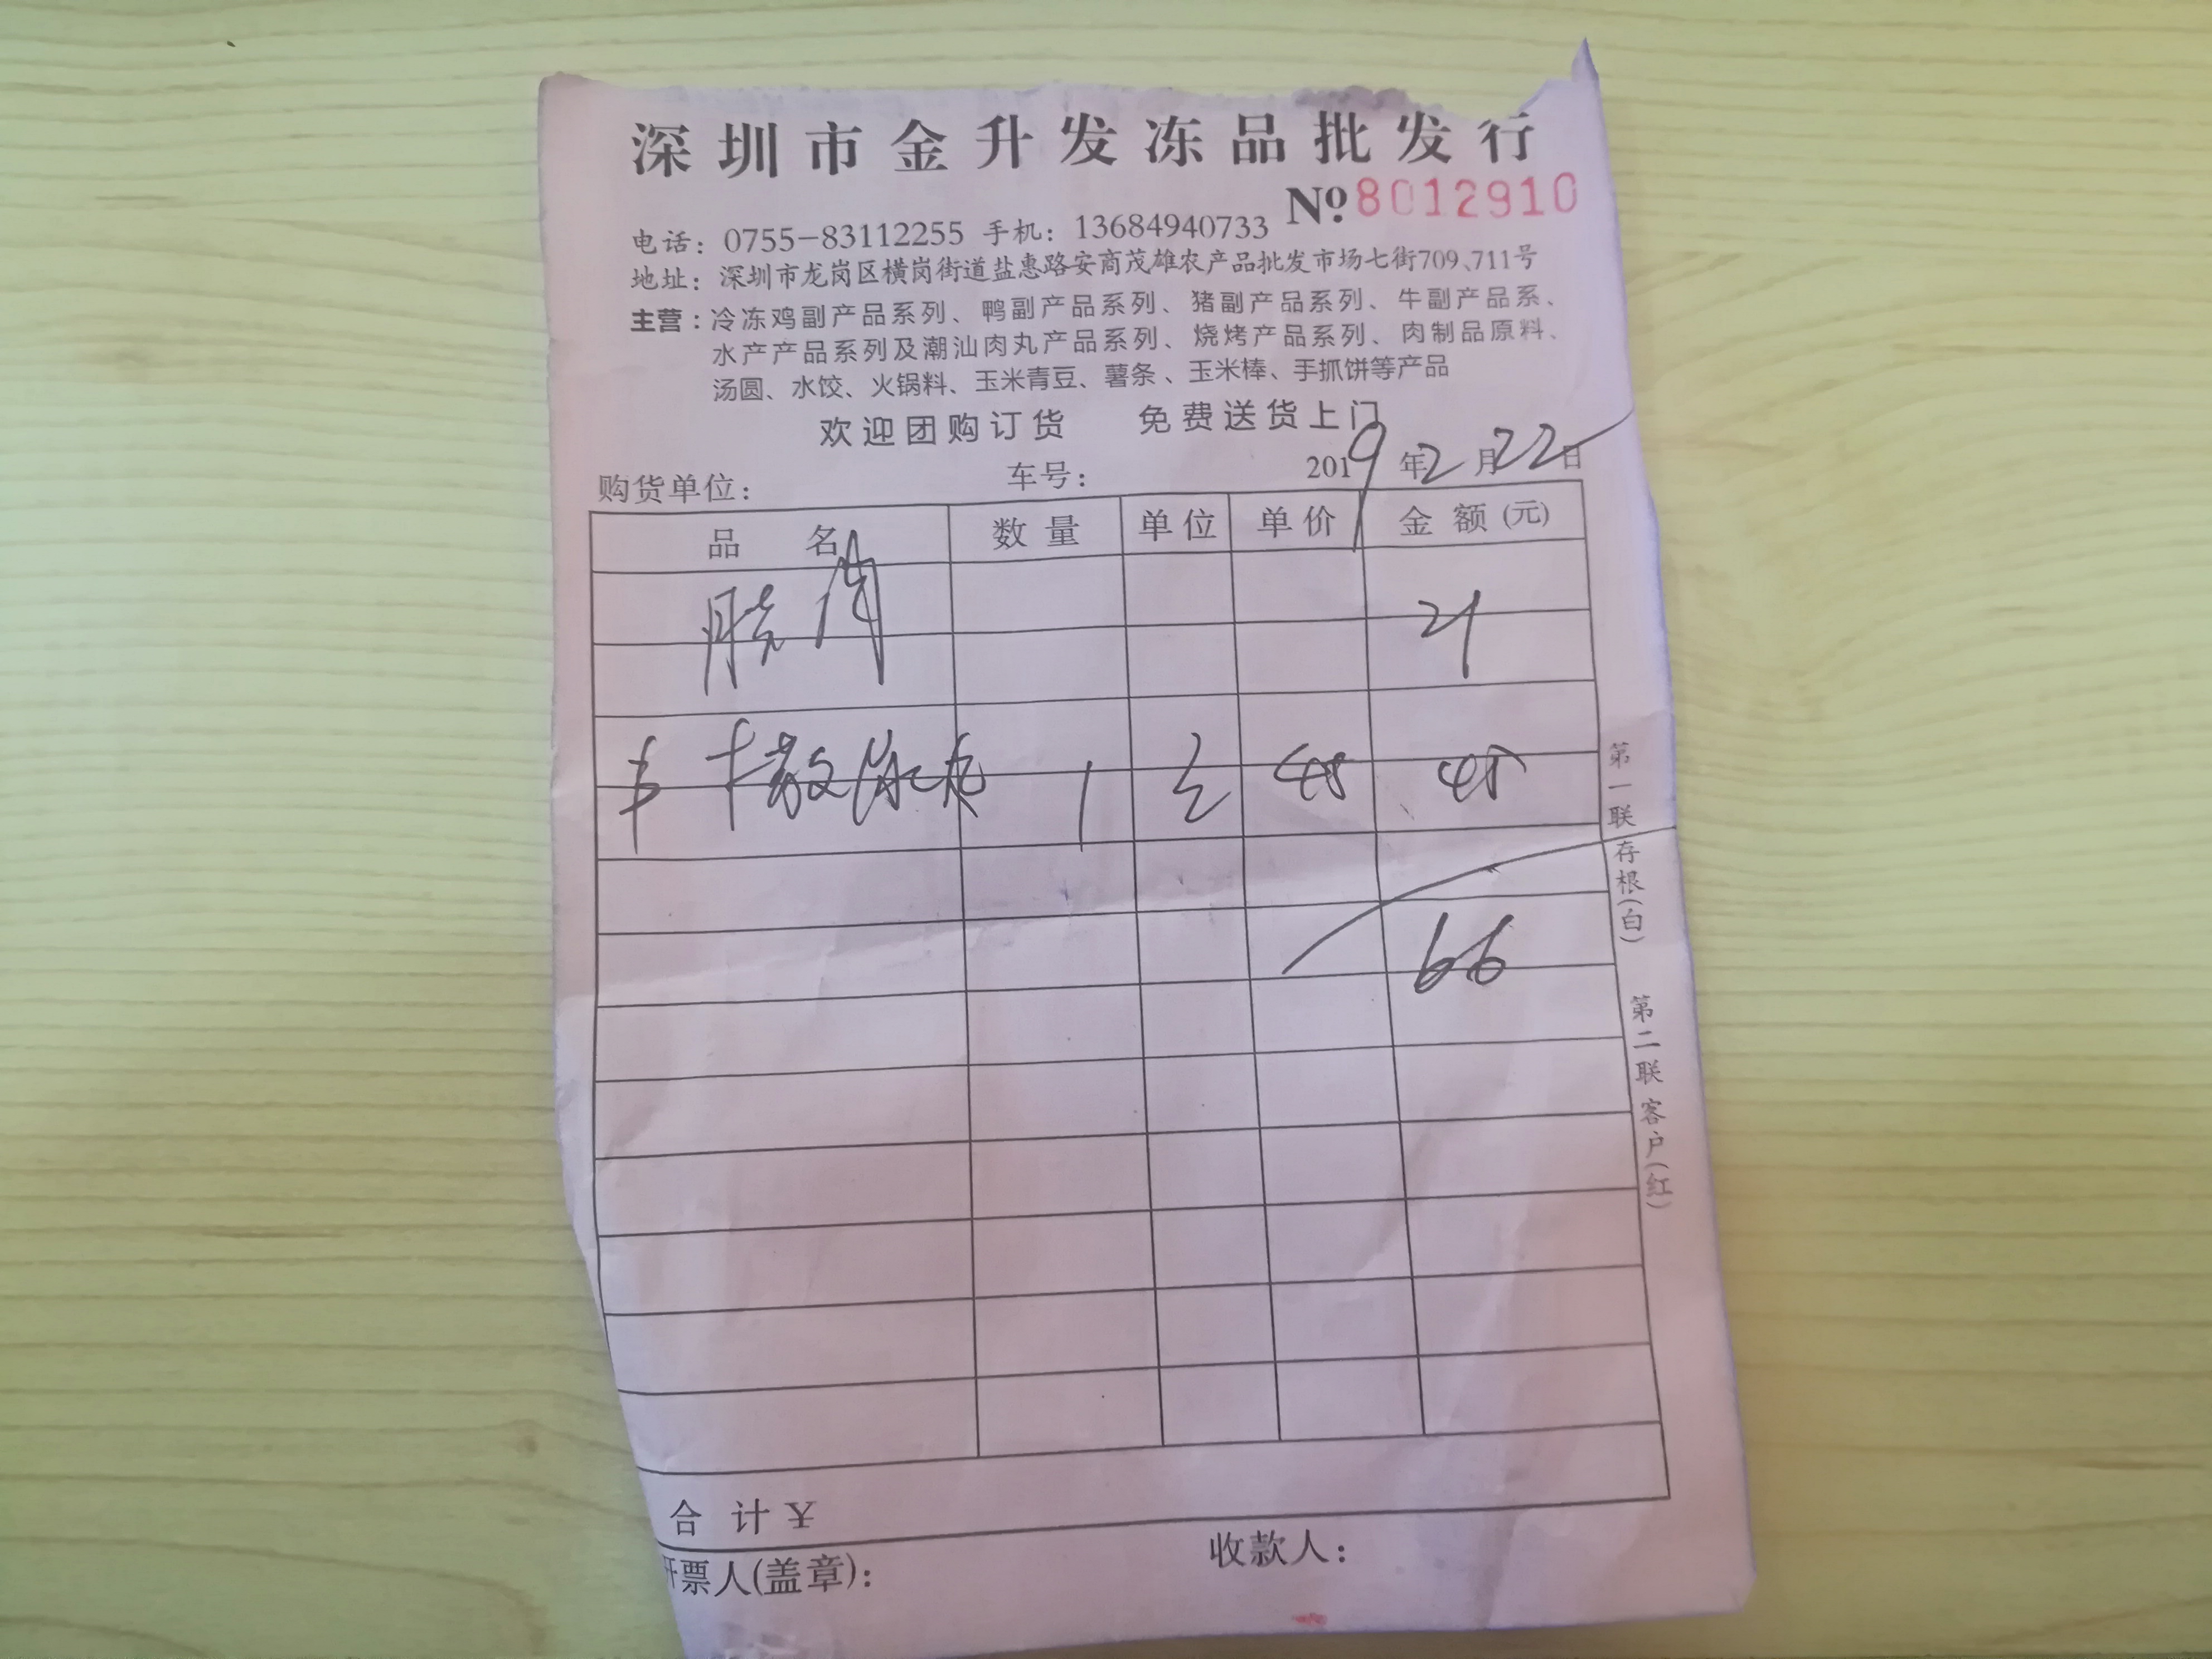 深圳市金升发冻品批发行
№ 8012910
电话：0755-83112255 手机：13684940733
地址：深圳市龙岗区横岗街道盐惠路安商茂雄农产品批发市场七街709、711号
主营：冷冻鸡副产品系列、鸭副产品系列、猪副产品系列、牛副产品系、
水产产品系列及潮汕肉丸产品系列、烧烤产品系列、肉制品原料、
汤圆、水饺、火锅料、玉米青豆、薯条、玉米棒、手抓饼等产品
欢迎团购订货 免费送货上门
购货单位： 车号： 2019年2月22日
品名 数量 单位 单价 金额(元)
21
散 丸 1 45 45
66
合计￥
开票人(盖章)： 收款人：
第一联 存根(白) 第二联 客户(红)